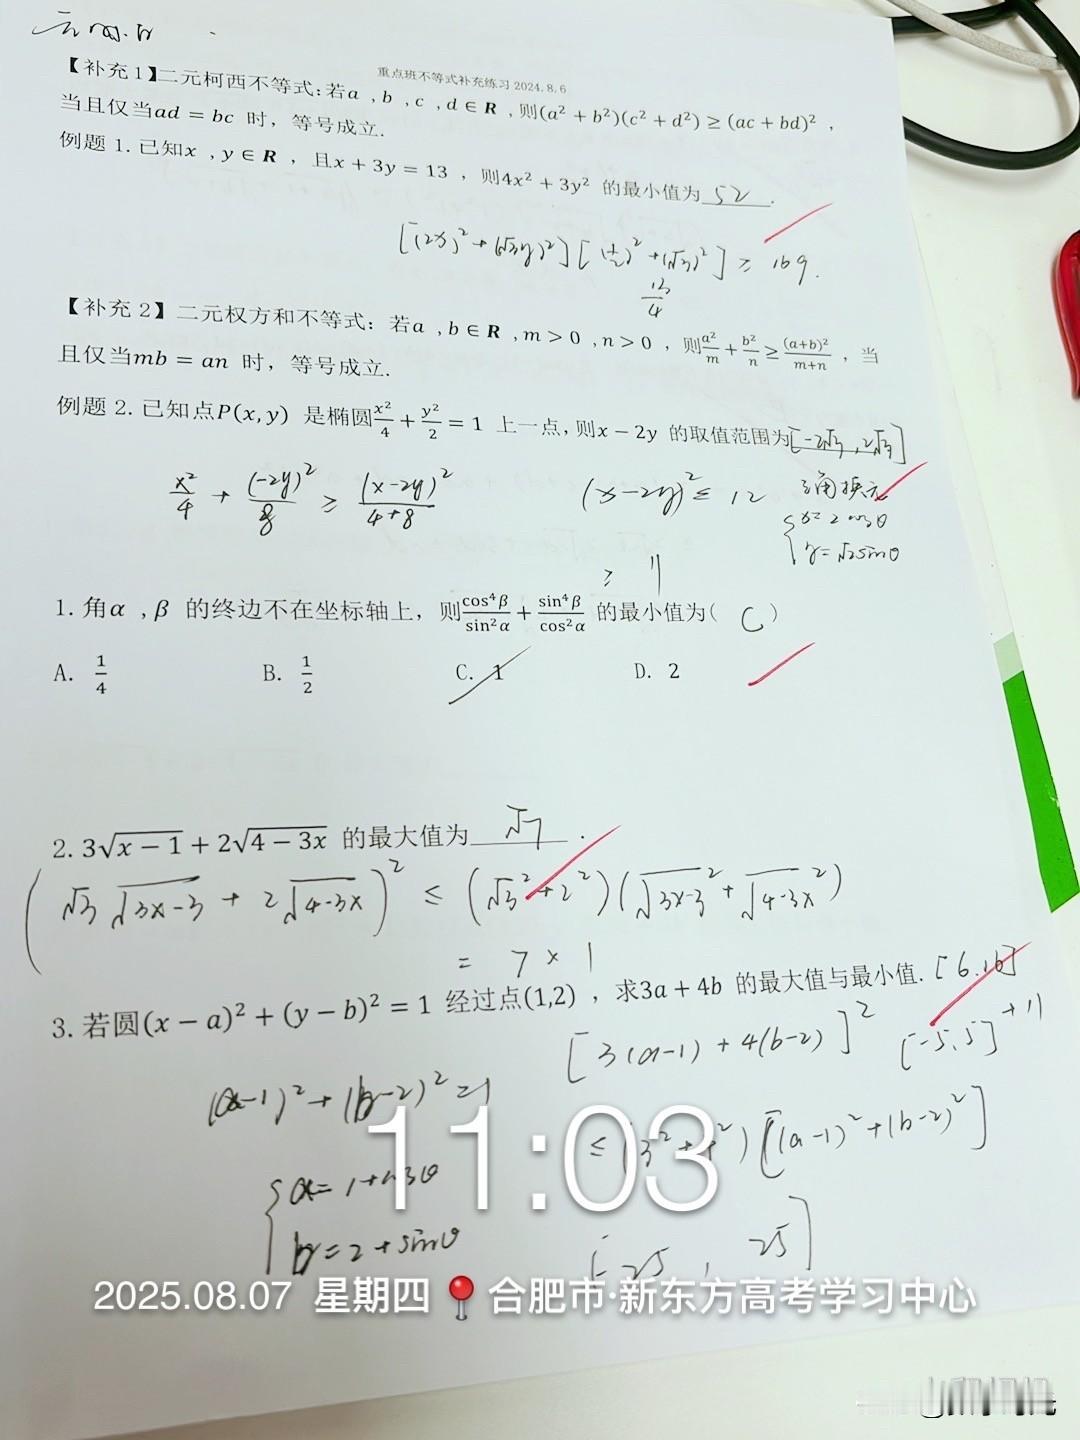 重点班不等式补充练习 2024.8.6
【补充1】二元柯西不等式:若a ,b ,c ,d ∈ R ,则(a² + b²)(c² + d²) ≥ (ac + bd)² ,
当且仅当ad = bc 时，等号成立.
例题 1. 已知x ,y ∈ R ，且x + 3y = 13 ，则4x² + 3y² 的最小值为 52 .
[(2x)² + (√3y)²] [(1/2)² + (√3)²] ≥ 169.
13/4
【补充 2】二元权方和不等式: 若a ,b ∈ R ,m > 0 ,n > 0 ，则a²/m + b²/n ≥ (a+b)²/(m+n) ，当
且仅当mb = an 时，等号成立.
例题 2. 已知点P(x, y) 是椭圆x²/4 + y²/2 = 1 上一点, 则x − 2y 的取值范围为[-2√3, 2√3]
x²/4 + (-2y)²/8 ≥ (x-2y)²/(4+8) (x-2y)² ≤ 12 三角换元
x=2cosθ
y=√2sinθ
≥ 1
1. 角α ,β 的终边不在坐标轴上，则cos⁴β/sin²α + sin⁴β/cos²α 的最小值为( C )
A. 1/4 B. 1/2 C. 1 D. 2
2. 3√(x − 1) + 2√(4 − 3x) 的最大值为 √7 .
(√3 √(3x-3) + 2√(4-3x))² ≤ (√3² + 2²)(√(3x-3)² + √(4-3x)²)
= 7 × 1
3. 若圆(x − a)² + (y − b)² = 1 经过点(1,2) ，求3a + 4b 的最大值与最小值. [6,16]
[3(a-1) + 4(b-2)]² [-5,5] +11
(a-1)² + (b-2)² = 1
≤ (3² + 4²)[(a-1)² + (b-2)²]
a = 1+cosθ
b = 2+sinθ
[-25, 25]
11:03
2025.08.07 星期四 合肥市·新东方高考学习中心